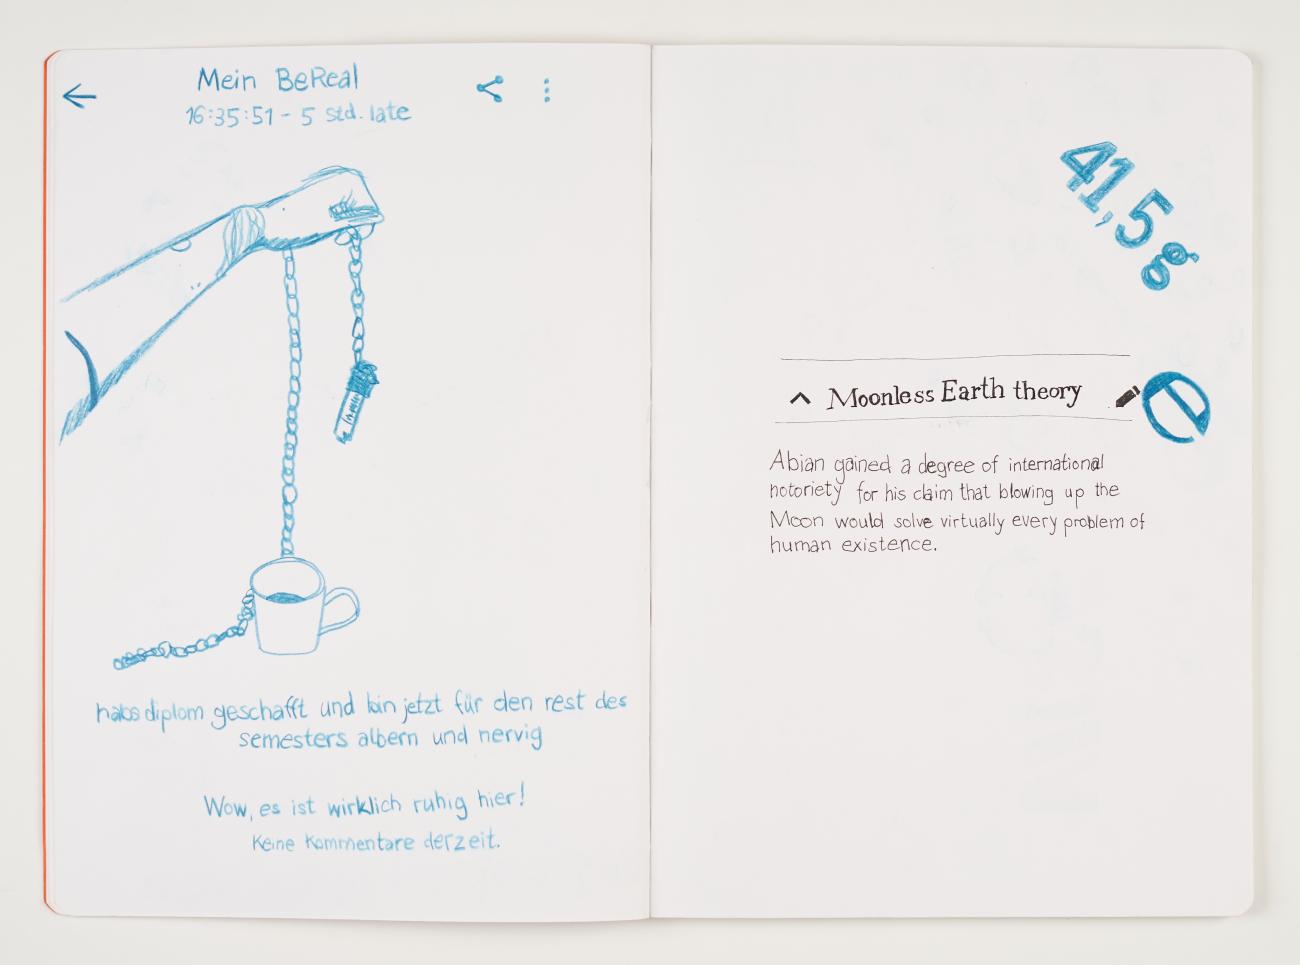 Mein BeReal
16:35:51 - 5 std. late
habs diplom geschafft und bin jetzt für den rest des
semesters albern und nervig
Wow, es ist wirklich ruhig hier!
Keine Kommentare derzeit.
41,5g
e
Moonless Earth theory
Abian gained a degree of international
notoriety for his claim that blowing up the
Moon would solve virtually every problem of
human existence.